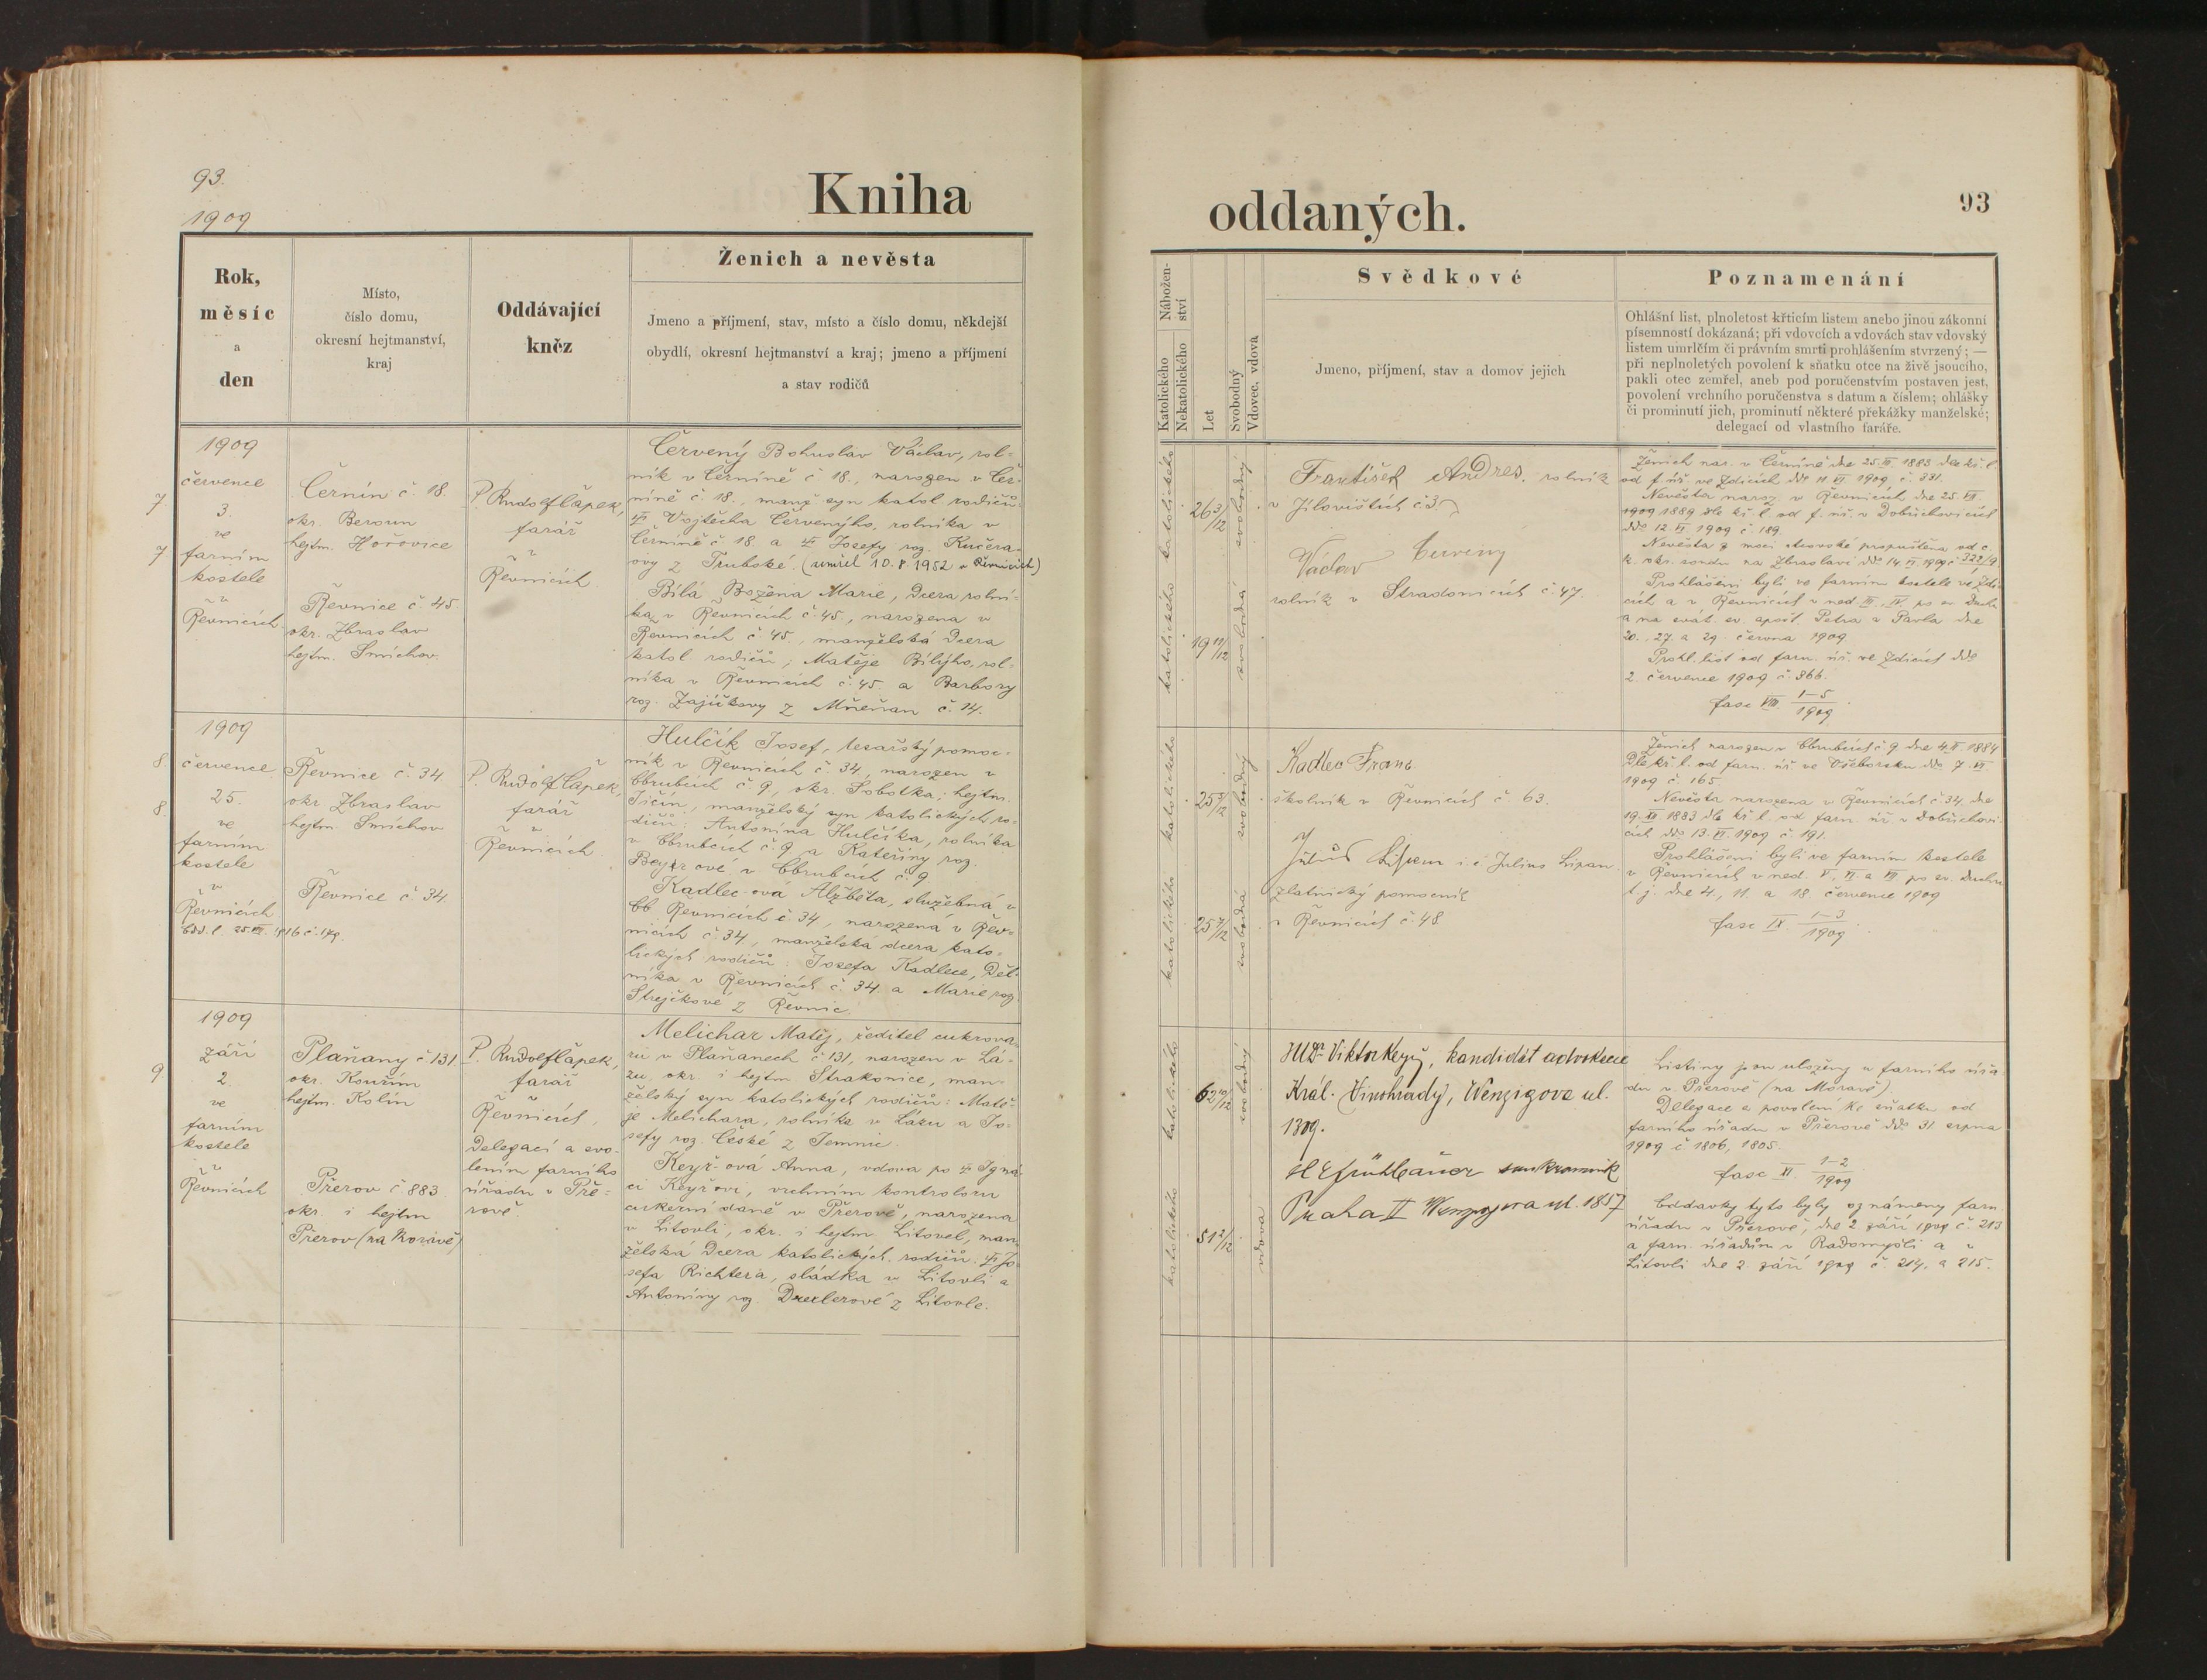 93.
1909
Kniha
Rok,
měsíc
a
den
Místo,
číslo domu,
okresní hejtmanství,
kraj
Oddávající
kněz
Ženich a nevěsta
Jmeno a příjmení, stav, místo a číslo domu, někdejší
obydlí, okresní hejtmanství a kraj; jmeno a příjmení
a stav rodičů
1909
července
7
3.
ve
7
farním
kostele
v
Řevnicích
Černín č. 18.
okr. Beroun
hejtm. Hořovice
Řevnice č. 45
okr. Zbraslav
hejtm. Smíchov.
P. Rudolf Čapek,
farář
v
Řevnicích.
Červený Bohuslav Václav, rol-
ník v Černíně č 18., narozen v Čer-
níně č 18., manž. syn katol. rodičů
Vojtěcha Červenýho, rolníka v
Černíně č 18 a Josefy roz. Kučera-
ovy z Trubské. (umřel 10.8 1952 v Řevnicích)
Bílá Božena Marie, dcera rolní-
ka v Řevnicích č. 45., narozena v
Řevnicích č. 45., manželská dcera
katol rodičů; Matěje Bílýho, rol-
níka v Řevnicích č. 45. a Barbory
roz. Zajíčkovy z Mňeňan č. 14.
1909
8.
července
25.
8.
ve
farním
kostele
v
Řevnicích
Odd. l. 25. VII. 1916 č. 179.
Řevnice č. 34
okr Zbraslav
hejtm. Smíchov
Řevnice č. 34.
P. Rudolf Čapek,
farář
v
Řevnicích.
Hulčík Josef, tesařský pomoc-
ník v Řevnicích č. 34, narozen v
Obrubcích č. 9, okr. Sobotka; hejtm.
Jičín, manželský syn katolických ro-
dičů: Antonína Hulčíka, rolníka
v Obrubcích č. 9 a Kateřiny roz.
v Obrubcích č. 9
Kadlec-ová Alžběta, služebná v
Řevnicích č. 34, narozená v Řev-
nicích č. 34, manželská dcera kato-
lických rodičů: Josefa Kadlece, děl-
níka v Řevnicích č. 34. a Marie roz.
Strejčkové z Řevnic.
1909
září
9
2.
ve
farním
kostele
v
Řevnicích
Plaňany č 131.
okr. Kouřim
hejtm. Kolín
Přerov č 883
okr. i hejtm
Přerov (na Moravě)
P. Rudolf Čapek,
farář
v
Řevnicích,
Delegací a svo-
lením farního
úřadu v Pře-
rově.
Melichar Matěj, ředitel cukrova-
ru v Plaňanech č 131, narozen v Lá-
zu, okr. i hejtm Strakonice, man-
želský syn katolických rodičů: Matě-
je Melichara, rolníka v Lázu a Jo-
sefy roz. České z Jemnic.
Keyř-ová Anna, vdova po Igná-
ci Keyřovi, vrchním kontroloru
cukerní daně v Přerově, narozena
v Litovli, okr. i hejtm. Litovel, man-
želská dcera katolických rodičů: Jo-
sefa Richtera, sládka v Litovli a
Antoniny roz. Drexlerové z Litovle.
oddaných.
93
Nábožen-
ství
Katolického
Nekatolického
Let
Svobodný
Vdovec, vdova
Svědkové
Jmeno, příjmení, stav a domov jejich
Poznamenání
Ohlášní list, plnoletost křticím listem anebo jinou zákonní
písemností dokázaná; při vdovcích a vdovách stav vdovský
listem umrlčím či právním smrti prohlášením stvrzený; —
při neplnoletých povolení k sňatku otce na živě jsoucího,
pakli otec zemřel, aneb pod poručenstvím postaven jest,
povolení vrchního poručenstva s datum a číslem; ohlášky
či prominutí jich, prominutí některé překážky manželské;
delegací od vlastního faráře.
katolického
26 3/12
svobodný
katolického
19 11/12
svobodná
František Andres, rolník
v Jílovištích č 3.
Václav Červený
rolník v Stradonicích č. 47.
Ženich nar. v Černíně dne 25. 1883 dle kř. l.
od f. úř. ve Zdicích ddo 11 VI. 1909, č. 331.
Nevěsta naroz. v Řevnicích dne 25. VII
1909 1889 dle kř. l. od f. úř. v Dobřichovicích
ddo 12. VI. 1909 č. 189.
Nevěsta z moci otcovské propuštěna od c.
k. okr. soudu na Zbraslavi ddo 14 VI. 1909 č 322/9
Prohlášeni byli ve farním kostele ve Zdi-
cích a v Řevnicích v ned III., IV. po sv. Duchu
a na svát. sv. apošt. Petra a Pavla dne
20., 27. a 29. června 1909.
Prohl. list od farn. úř. ve Zdicích ddo
2. července 1909 č. 366.
fasc VIII 1-5/1909.
katolického
25 5/12
svobodný
katolického
25 7/12
svobodná
Kadlec Franc.
školník v Řevnicích č. 63.
Július Lipan i.e. Julius Lipan
zlatnický pomocník
v Řevnicích č. 48
Ženich narozen v Obrubcích č. 9. dne 4. II. 1884
Dle kř. l. od farn. úř. ve Všeborsku ddo 7. VI.
1909 č. 165.
Nevěsta narozena v Řevnicích č. 34, dne
19. XII. 1883 dle kř. l. od farn. úř. v Dobřichovi-
cích ddo 13. VI. 1909 č. 191.
Prohlášeni byli ve farním kostele
v Řevnicích v ned. V., VI. a VII. po sv. Duchu
t. j. dne 4., 11. a 18. července 1909
fasc IX. 1-3/1909.
katolického
63 10/12
svobodný
katolického
51 2/12
vdova
JUDr Viktor Keyř, kandidát advokacie
Král. Vinohrady, Wenzigova ul.
1309.
soukromník
Praha II Wenzigova ul. 1857
Listiny jsou uloženy u farního úřa-
du v Přerově (na Moravě).
Delegace a povolení ke sňatku od
farního úřadu v Přerově ddo 31. srpna
1909 č 1806, 1805.
fasc XI. 1-2/1909
Oddavky tyto byly oznámeny farn.
úřadu v Přerově, dne 2. září 1909 č. 213
a farn. úřadům v Radomyšli a v
Litovli dne 2. září 1909 č. 214. a 215.